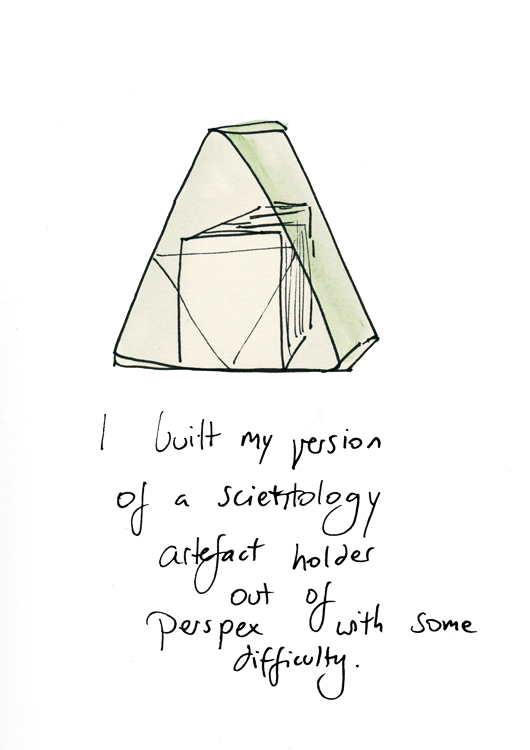 I built my version
of a scientology
artefact holder
out of
perspex with some
difficulty.